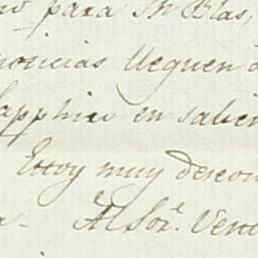 para Sn Blas,
noticias lleguen
Sapphir en salien
Estoy muy descon
Al Sor. Vent